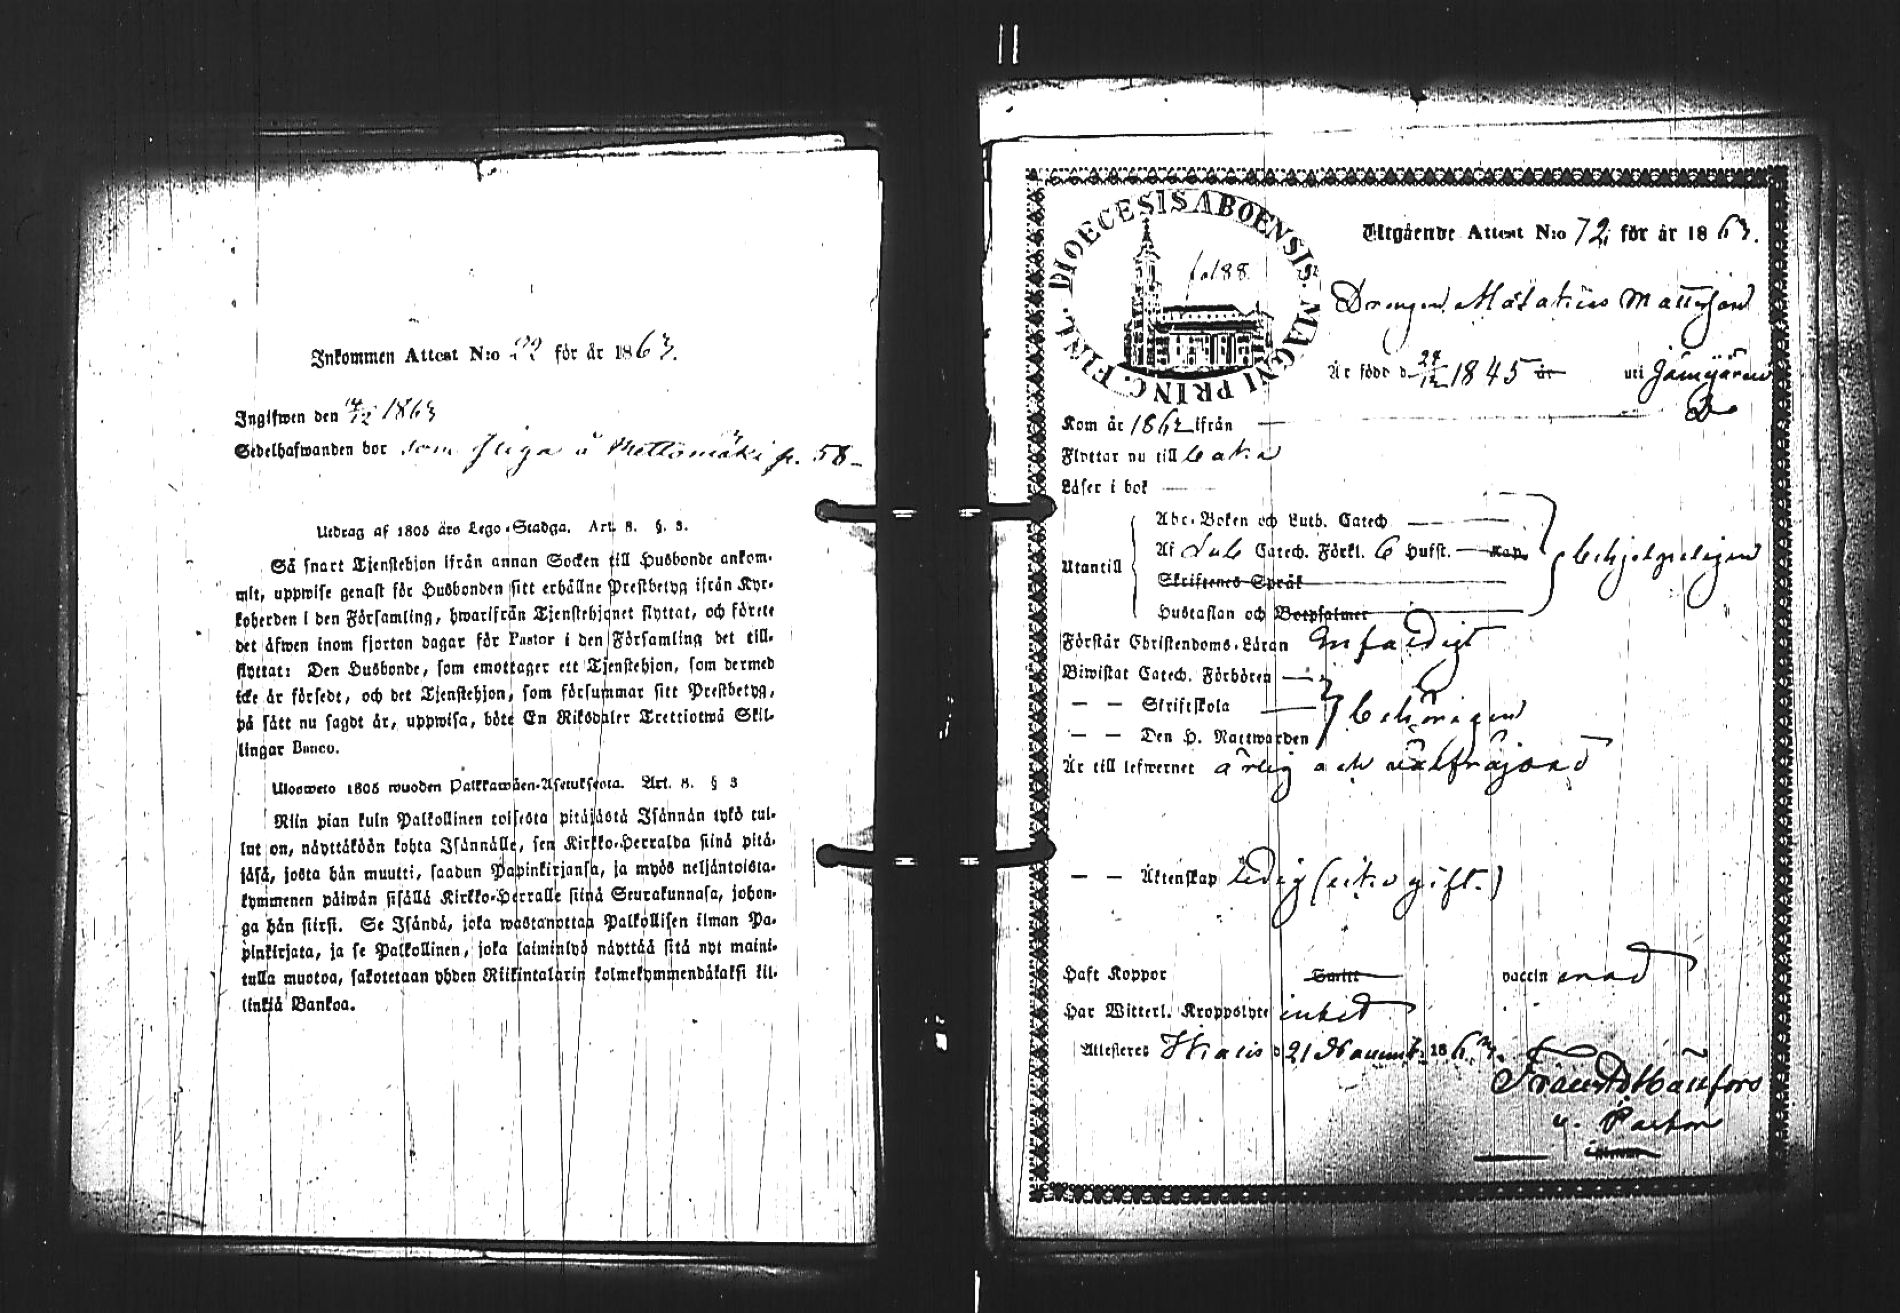 Inkommen Attest N:o 22 för år 1863.
Ingifwen den 14/12 1863
Sedelhafwanden bor som Piga å Mettömäki p. 58
Utdrag af 1805 års Lego-Stadga. Art. 8. §. 3.
Så snart Tjenstehjon ifrån annan Socken till Husbonde ankom-
mit, uppwise genast för Husbonden sitt erhållne Prestbetyg ifrån Kyr-
koherden i den Församling, hwarifrån Tjenstehjonet flyttat, och förete
det äfwen inom fjorton dagar för Pastor i den Församling det till-
flyttat: Den Husbonde, som emottager ett Tjenstehjon, som dermed
icke är försedt, och det Tjenstehjon, som försummar sitt Prestbetyg,
på sätt nu sagdt är, uppwisa, böte En Riksdaler Trettiotwå Skil-
lingar Banco.
Ulosweto 1805 wuoden Palkkawäen-Asetuksesta. Art. 8. § 3
Niin pian kuin Palkollinen toisesta pitäjästä Isännän tykö tul-
lut on, näyttäköön kohta Isännälle, sen Kirkko-Herralda siinä pitä-
jäsä, josta hän muutti, saadun Papinkirjansa, ja myös neljäntoista-
kymmenen päiwän sisällä Kirkko-Herralle siinä Seurakunnasa, johon-
ga hän siirsi. Se Isändä, joka wastanottaa Palkollisen ilman Pa-
pinkirjata, ja se Palkollinen, joka laiminlyö näyttää sitä nyt maini-
tulla muotoa, sakotetaan yhden Riikintalarin kolmekymmendäkaksi kil-
linkiä Bankoa.
DIOECESIS ABOENSIS. MAGNI PRINC. FINL.
fol 88
Utgående Attest N:o 72 för år 1863.
Drengen Matts Mattsson
Är född d 24/12 1845 år uti
Kom år 1862 ifrån
Flyttar nu till
Läser i bok
Utantill
Abc-Boken och Luth. Catech
Af Luth Catech. Förkl. 6 Hufst. Kap.
Skriftenes Språk
Hustaflan och Botpsalmer
behjelpeligen
Förstår Christendoms-Läran enfaldigt
Biwistat Catech. Förhören
— — Skriftskola
— — Den H. Nattwarden
behörigen
Är till lefwernet ärlig och wälfräjdad
— — Äktenskap ledig (icke gift.)
Haft Koppor vaccinerad
Har Witterl. Kroppslyte intet
Attesteras d 21 Novemb. 1863.
v. Pastor